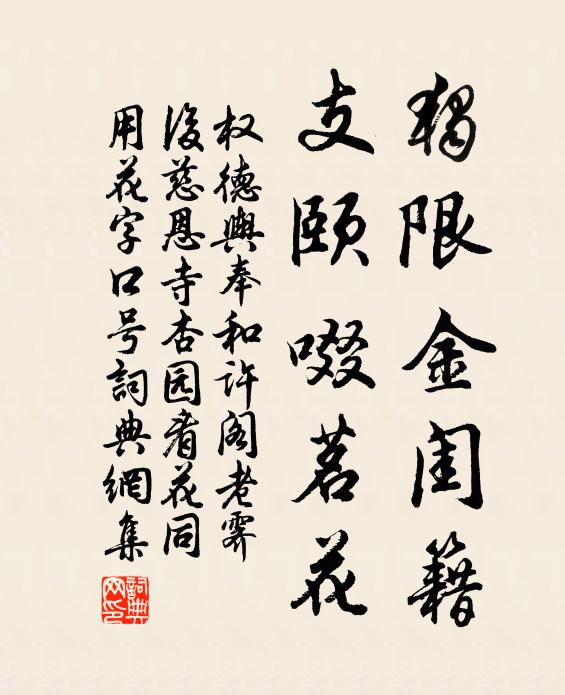 独限金闺籍
支颐啜茗花
权德舆奉和许阁老霁
後慈恩寺杏园看花同
用花字口号詞典網集
詞典
网印